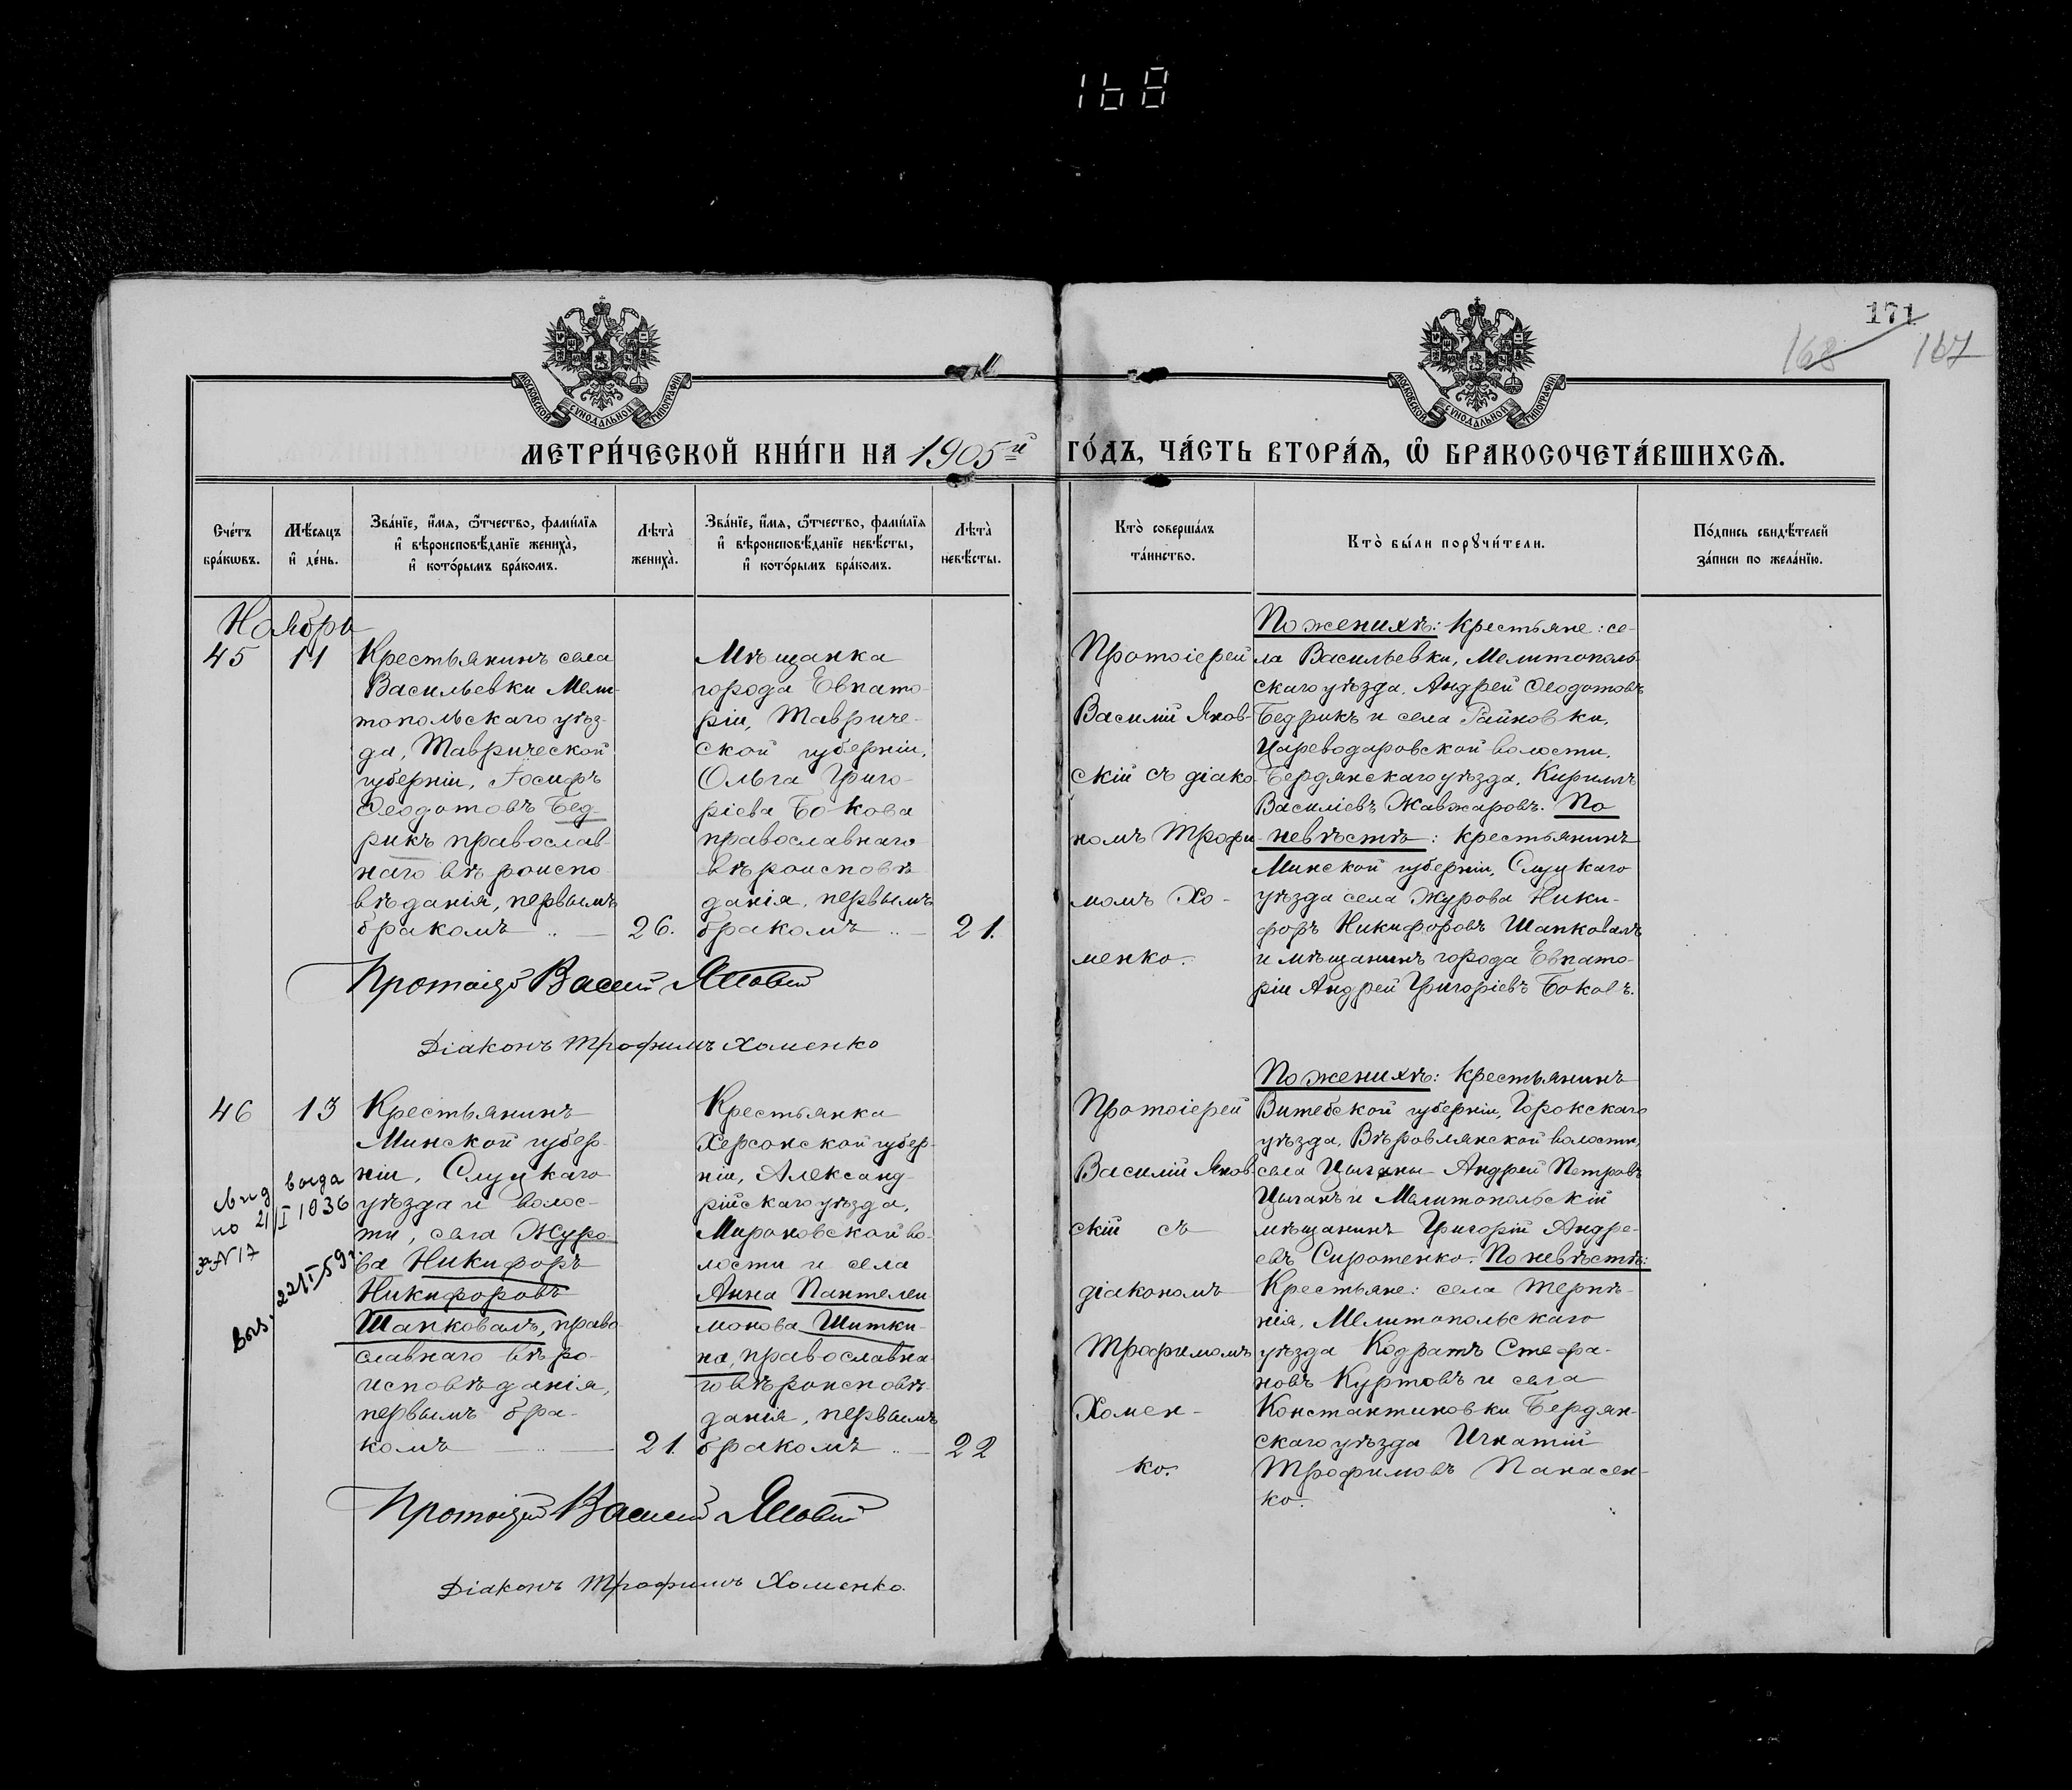 168
171
168 167
МОСКОВСКОЙ СѴНОДАЛЬНОЙ ТИПОГРАФІИ
МОСКОВСКОЙ СѴНОДАЛЬНОЙ ТИПОГРАФІИ
МЕТРИ́ЧЕСКОЙ КНИ́ГИ НА 1905й ГО́ДЪ, ЧА́СТЬ ВТОРА́Ѧ, Ѡ҆ БРАКОСОЧЕТА́ВШИХСѦ.
Сче́тъ
бра́кѡвъ.
Мѣ́сѧцъ
и҆ де́нь.
Зва́нїе, и҆́мѧ, ѻ҆́тчество, фами́лїѧ
и҆ вѣроисповѣ́данїе жениха̀,
и҆ кото́рымъ бра́комъ.
Лѣта̀
жениха̀.
Зва́нїе, и҆́мѧ, ѻ҆́тчество, фами́лїѧ
и҆ вѣроисповѣ́данїе невѣ́сты,
и҆ кото́рымъ бра́комъ.
Лѣта̀
невѣ́сты.
Кто̀ соверша́лъ
та́инство.
Кто̀ бы́ли порꙋчи́тели.
По́дпись свидѣ́телей
за́писи по жела́нїю.
Ноябрь
45
11
Крестьянинъ села
Васильевки Мели-
топольскаго уѣз-
да, Таврической
губерніи, Іосифъ
Ѳеодотовъ Бед-
рикъ православ-
наго вѣроиспо
вѣданія, первымъ
бракомъ
26.
Мѣщанка
города Евпато-
ріи, Тавриче-
ской губерніи,
Ольга Григо-
ріева Бокова
православнаго
вѣроисповѣ
данія, первымъ
бракомъ
21.
Протоіерей
Василій Янов-
скій съ діако-
номъ Трофи-
момъ Хо-
менко.
По женихѣ: Крестьяне: се-
ла Васильевки, Мелитополь-
скаго уѣзда, Андрей Ѳеодотовъ
Бедрикъ и села Райновки,
Цареводаровской волости,
Бердянскаго уѣзда, Кириллъ
Василіевъ Жавжаровъ. По
невѣстѣ: крестьянинъ
Минской губерніи, Слуцкаго
уѣзда села Журова Ники-
форъ Никифоровъ Шапковалъ
и мѣщанинъ города Евпато-
ріи Андрей Григоріевъ Боковъ.
Протоіерей Василій
Діаконъ Трофимъ Хоменко
46
13
Крестьянинъ
Минской губер-
ніи, Слуцкаго
уѣзда и волос-
ти, села Журо-
ва Никифоръ
Никифоровъ
Шапковалъ, право
славнаго вѣро-
исповѣданія,
первымъ бра-
комъ
21.
Крестьянка
Херсонской губер-
ніи, Александ-
рійскаго уѣзда,
Мироновской во-
лости и села
Анна Пантелеи
монова Шитки-
на, православна-
го вѣроисповѣ-
данія, первымъ
бракомъ
22
Протоіерей
Василій Янов
скій съ
діакономъ
Трофимомъ
Хомен-
ко.
По женихѣ: крестьянинъ
Витебской губерніи, Горокскаго
уѣзда, Вѣровлянской волости,
села Цыганы Андрей Петровъ
Цыганъ и Мелитопольскій
мѣщанинъ Григорій Андре-
евъ Сиротенко. По невѣстѣ:
Крестьяне: села Терпѣ-
нія, Мелитопольскаго
уѣзда Кодратъ Стефа-
новъ Куртовъ и села
Константиновки Бердян-
скаго уѣзда Игнатій
Трофимовъ Панасен-
ко.
21/I 1936
№17
22/I 59г.
Протоіерей Василій
Діаконъ Трофимъ Хоменко.